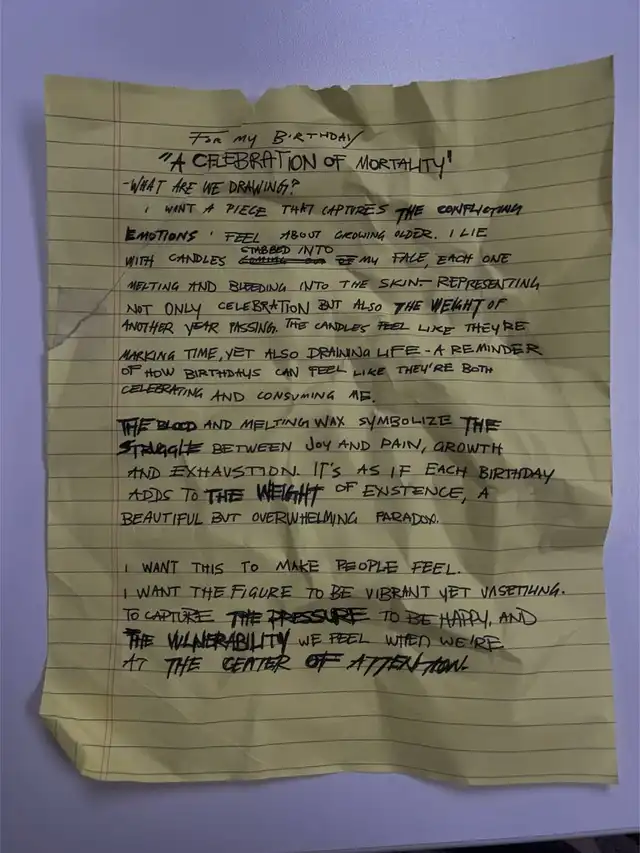 FOR MY BIRTHDAY
"A CELEBRATION OF MORTALITY"
-WHAT ARE WE DRAWING?
I WANT A PIECE THAT CAPTURES THE CONFLICTING
EMOTIONS I FEEL ABOUT GROWING OLDER. I LIE
STABBED INTO
WITH CANDLES COMING OUT OF MY FACE, EACH ONE
MELTING AND BLEEDING INTO THE SKIN REPRESENTING
NOT ONLY CELEBRATION BUT ALSO THE WEIGHT OF
ANOTHER YEAR PASSING. THE CANDLES FEEL LIKE THEY'RE
MARKING TIME, YET ALSO DRAINING LIFE - A REMINDER
OF HOW BIRTHDAYS CAN FEEL LIKE THEY'RE BOTH
CELEBRATING AND CONSUMING ME.
THE BLOOD AND MELTING WAX SYMBOLIZE THE
STRUGGLE BETWEEN JOY AND PAIN, GROWTH
AND EXHAUSTION. IT'S AS IF EACH BIRTHDAY
ADDS TO THE WEIGHT OF EXISTENCE, A
BEAUTIFUL BUT OVERWHELMING PARADOX.
I WANT THIS TO MAKE PEOPLE FEEL.
I WANT THE FIGURE TO BE VIBRANT YET UNSETTLING.
TO CAPTURE THE PRESSURE TO BE HAPPY, AND
THE VULNERABILITY WE FEEL WHEN WE'RE
AT THE CENTER OF ATTENTION.